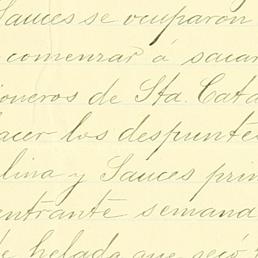 Sauces se ocuparon
comenzar á sacar
ioneros de Sta. Cata
acer los despuntes
lina y Sauces prin
entrante semana
de helada que secó